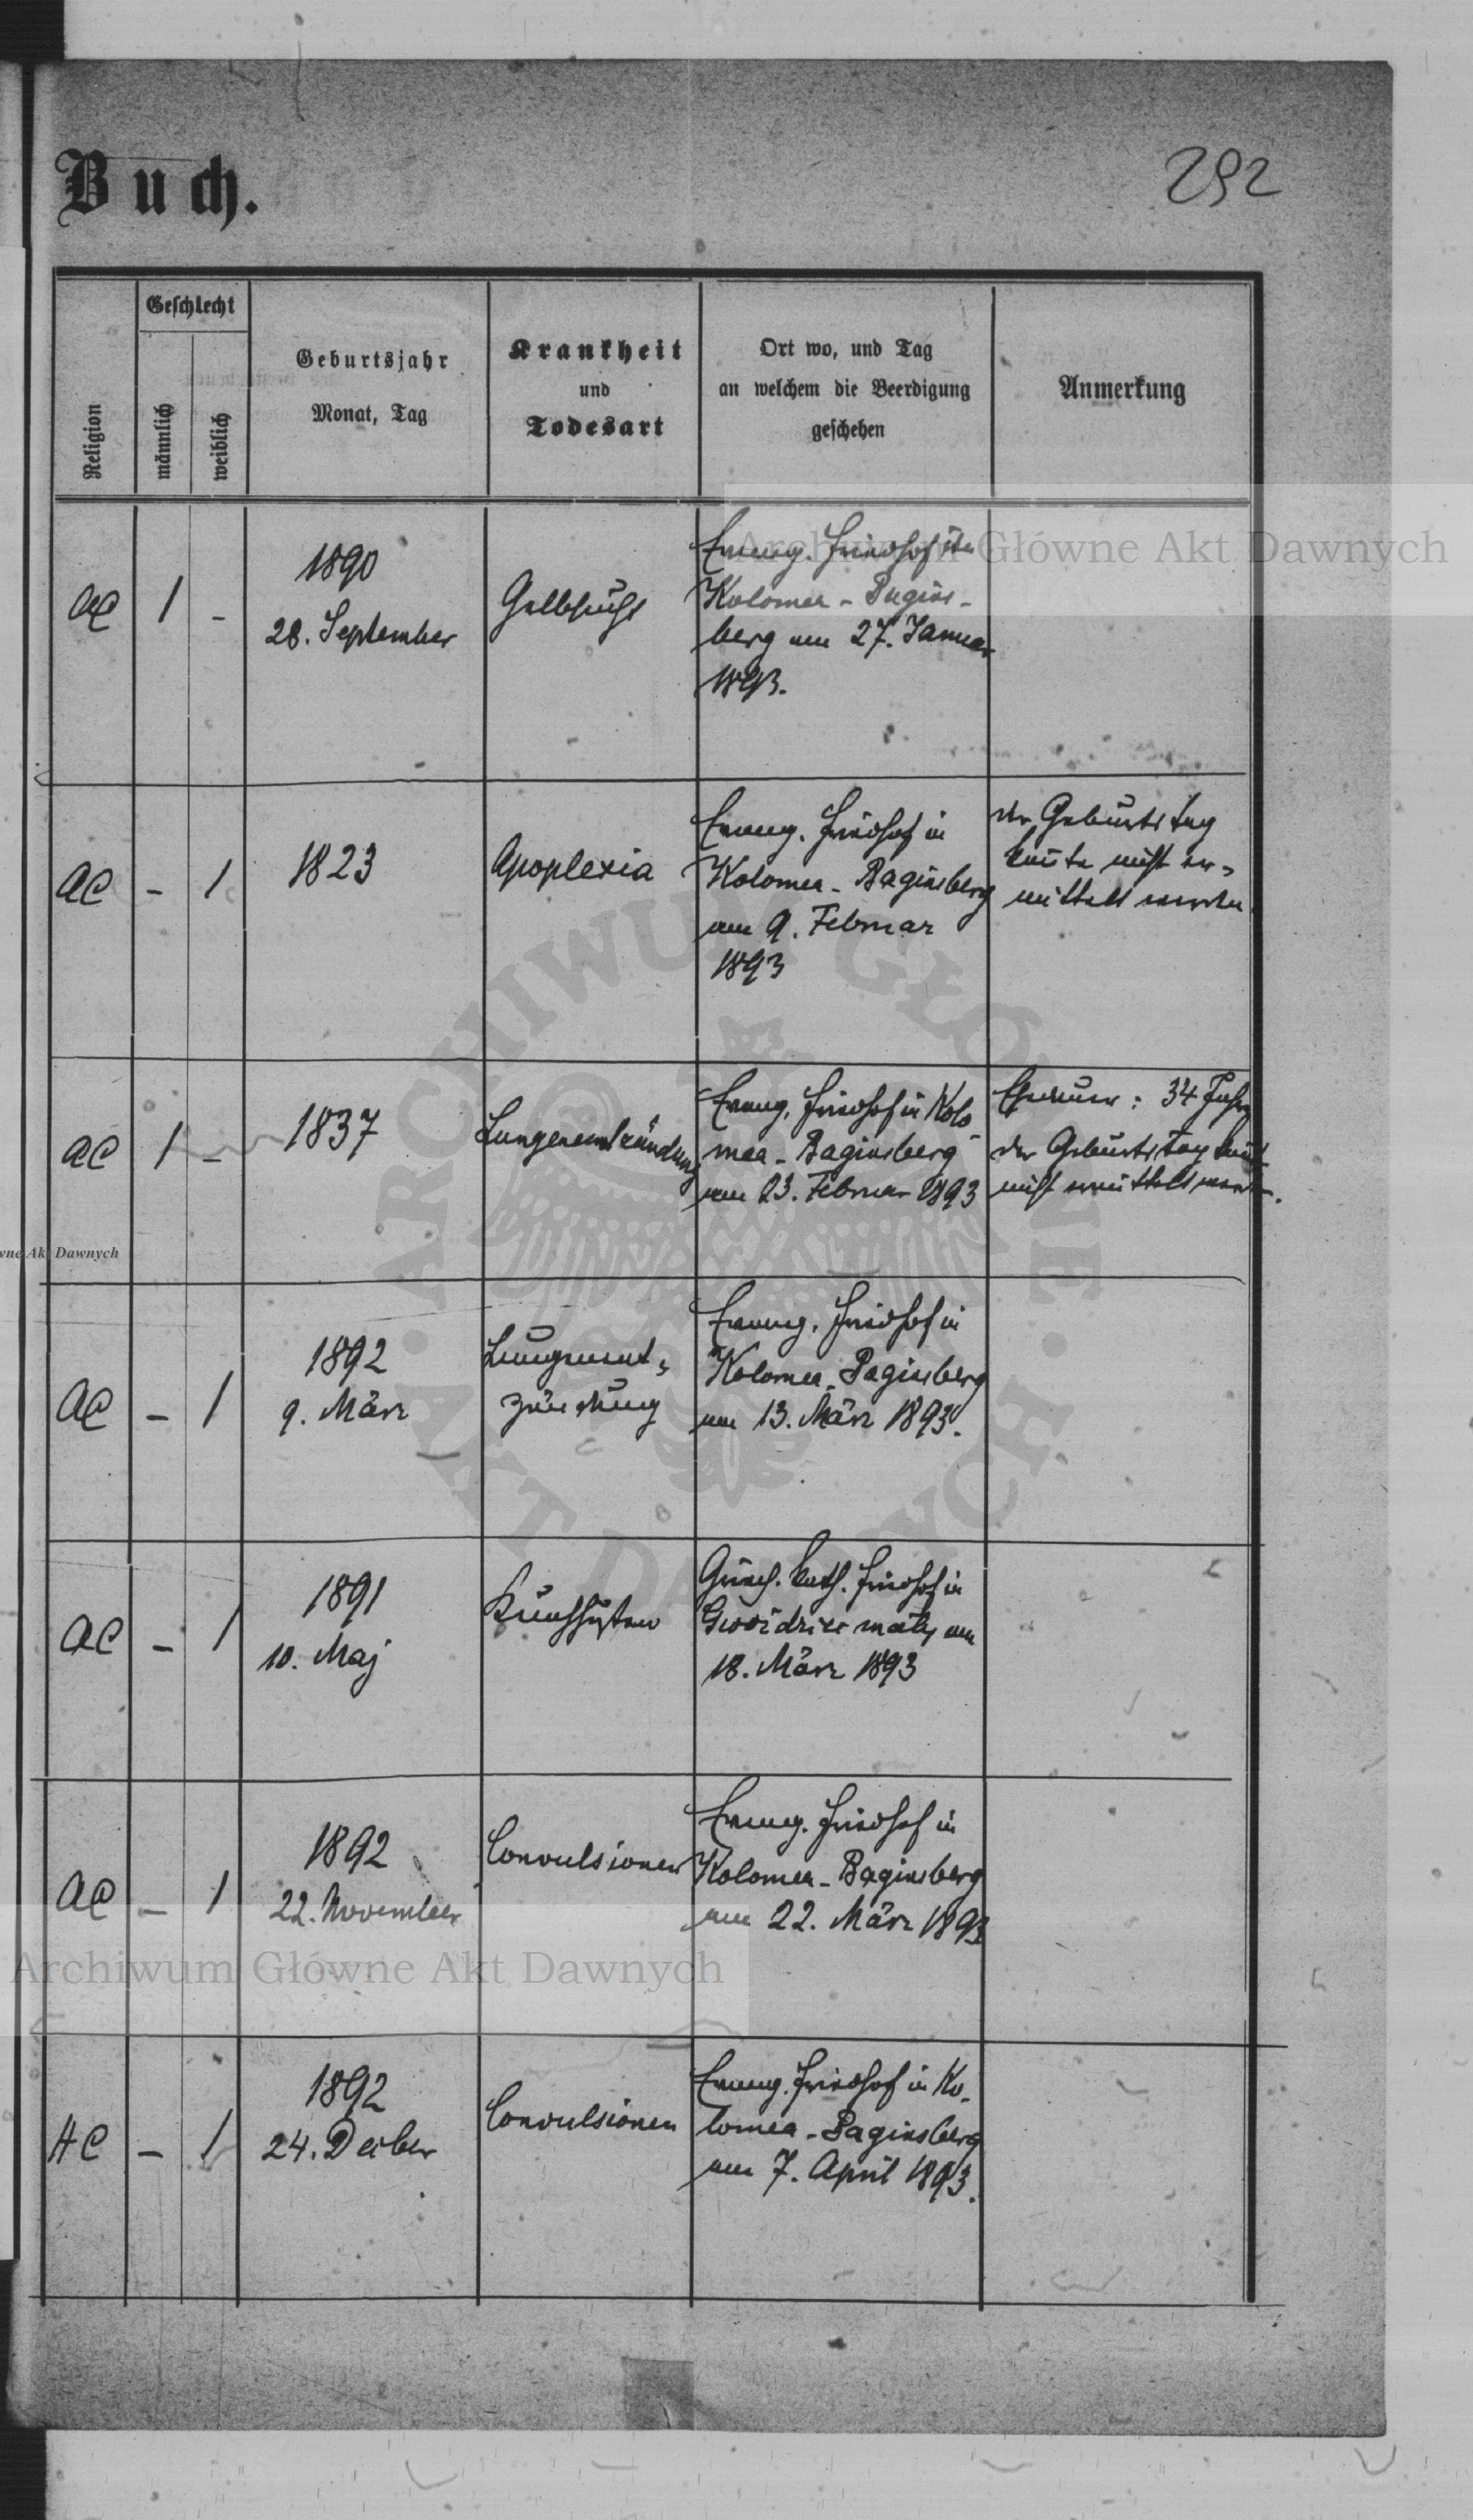 Buch.
292
Religion
Geschlecht
männlich
weiblich
Geburtsjahr
Monat, Tag
Krankheit
und
Todesart
Ort wo, und Tag
an welchem die Beerdigung
geschehen
Anmerkung
AC
1
-
1890
28. September
Gelbsucht
Evang. Friedhof in
Kolomea - Bagins-
berg am 27. Januar
1893.
AC
-
1
1823
Apoplexia
Evang. Friedhof in
Kolomea - Baginsberg
am 9. Februar
1893
der Geburtstag
konnte nicht er-
mittelt werden.
AC
1
-
1837
Lungenentzündung
Evang. Friedhof in Kolo-
mea - Baginsberg
am 23. Februar 1893
34 Jahre
der Geburtstag
nicht ermittelt
AC
-
1
1892
9. März
Lungenent-
zündung
Evang. Friedhof in
Kolomea - Baginsberg
am 13. März 1893.
AC
-
1
1891
10. Maj
Keuchhusten
Griech. kath. Friedhof in
am
18. März 1893
AC
-
1
1892
22. November
Convulsionen
Evang. Friedhof in
Kolomea - Baginsberg
am 22. März 1893
AC
-
1
1892
24. Dezber
Convulsionen
Evang. Friedhof in Ko-
lomea - Baginsberg
am 7. April 1893.
Archiwum Główne Akt Dawnych
wne Akt Dawnych
ARCHIWUM GŁÓWNE · AKT DAWNYCH ·
Archiwum Główne Akt Dawnych